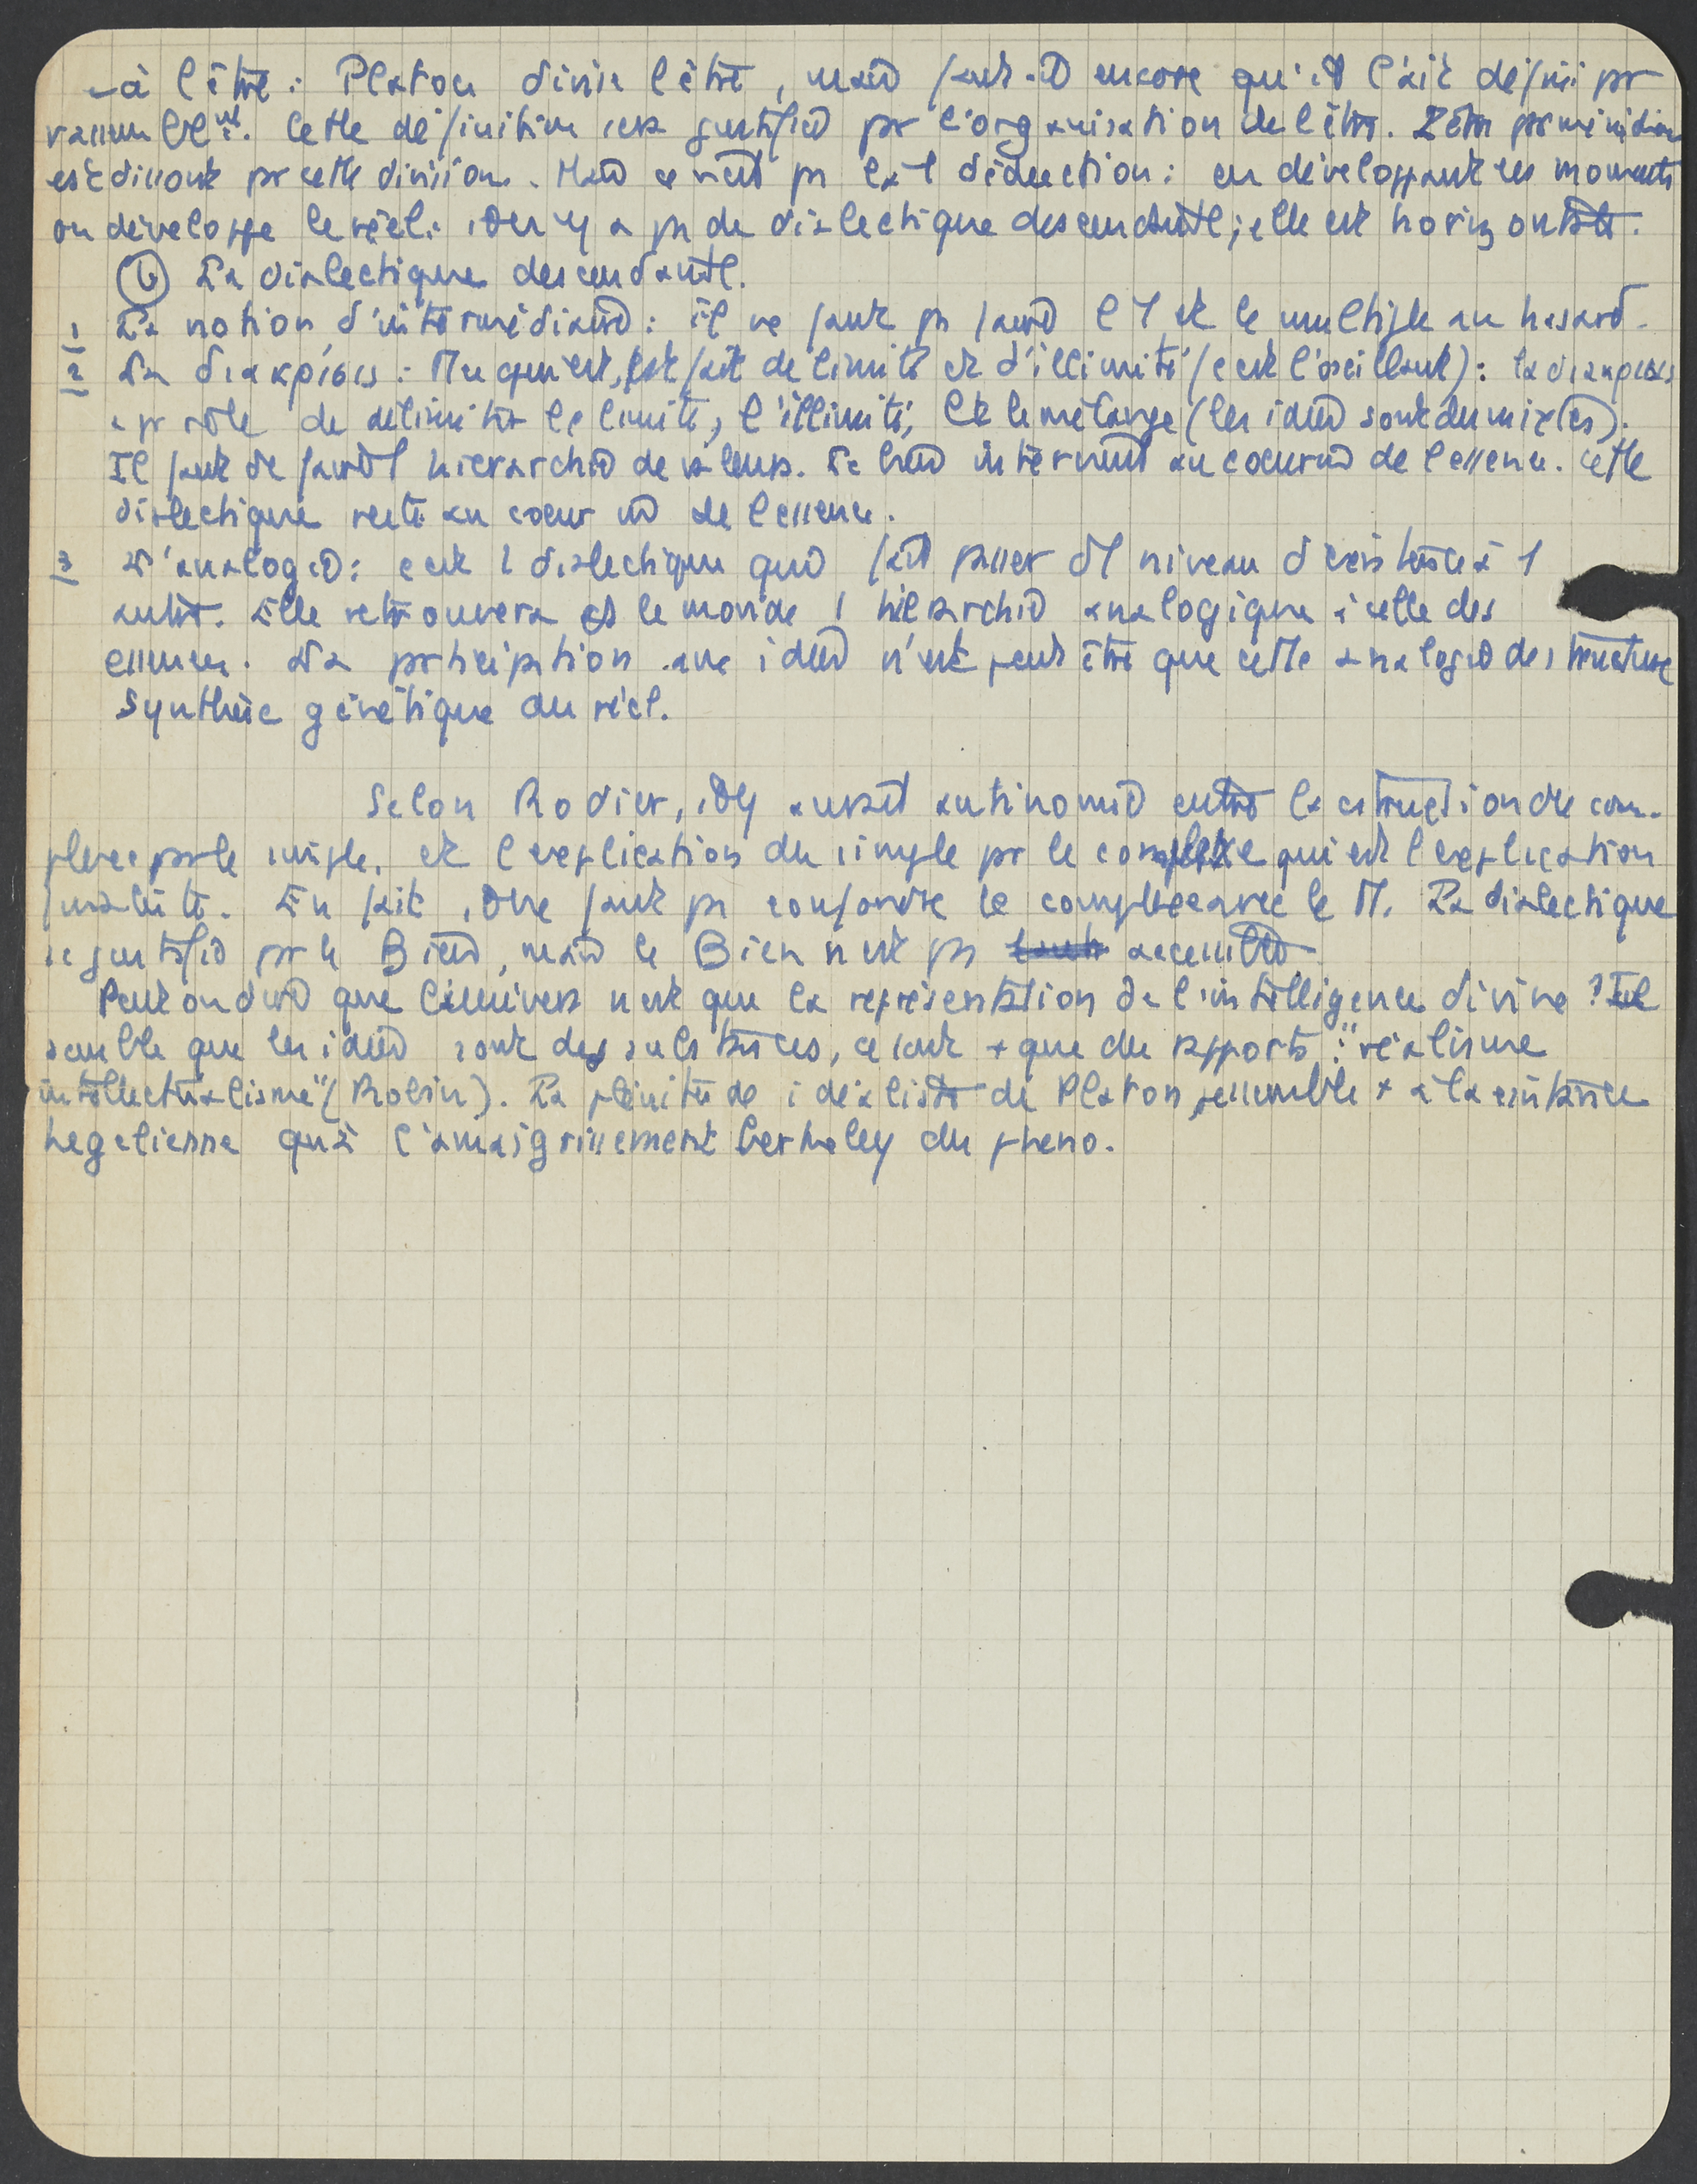 - à l'être : Platon divise l'être, mais faut-il encore qu'il l'ait défini pr
rassemblemt. Cette définition sera justifiée pr l'organisation de l'être. L'être
est dissout pr cette division. Mais ce n'est ps là 1 déduction : en développant les moments
on développe le réel. il n'y a ps de dialectique descendante ; elle est horizontale.
b La dialectique descendante.
1 La notion d'intermédiaire : il ne faut ps faire l'1 et le multiple au hasard.
2 La διακρίσις : tt ce qui est, est fait de limite et d'illimité (c'est l'oscillant) : la διακρίσις
a pr rôle de délimiter la limite, l'illimité, et le mélange (les idées sont des mixtes).
Il faut de faire 1 hiérarchie de valeurs. Le bien intervient au coeur de l'essence. cette
dialectique reste au coeur de l'essence.
3 L'analogie : c'est 1 dialectique qui fait passer d'1 niveau d'existence à 1
autre. Elle retrouvera ds le monde 1 hiérarchie analogique à celle des
essences. La participation aux idées n'est peut être que cette analogie de structure
synthèse génétique du réel.
Selon Rodier, il y aurait antinomie entre la cstruction du com-
plexe par le simple, et l'explication du simple pr le complexe qui est l'explication
finaliste. En fait, il ne faut ps confondre le complexe avec le M. La dialectique
se justifie pr le Bien, mais le Bien n'est ps
Peut on dire que l'univers n'est que la représentation de l'intelligence divine ? Il
semble que les idées sont des substances, ce sont + que des rapports : "réalisme
intellectualisme" (Robin). La plénitude idéaliste de Platon ressemble + à la
hegelienne qu'à l'amaigrissement berkeley du pheno.